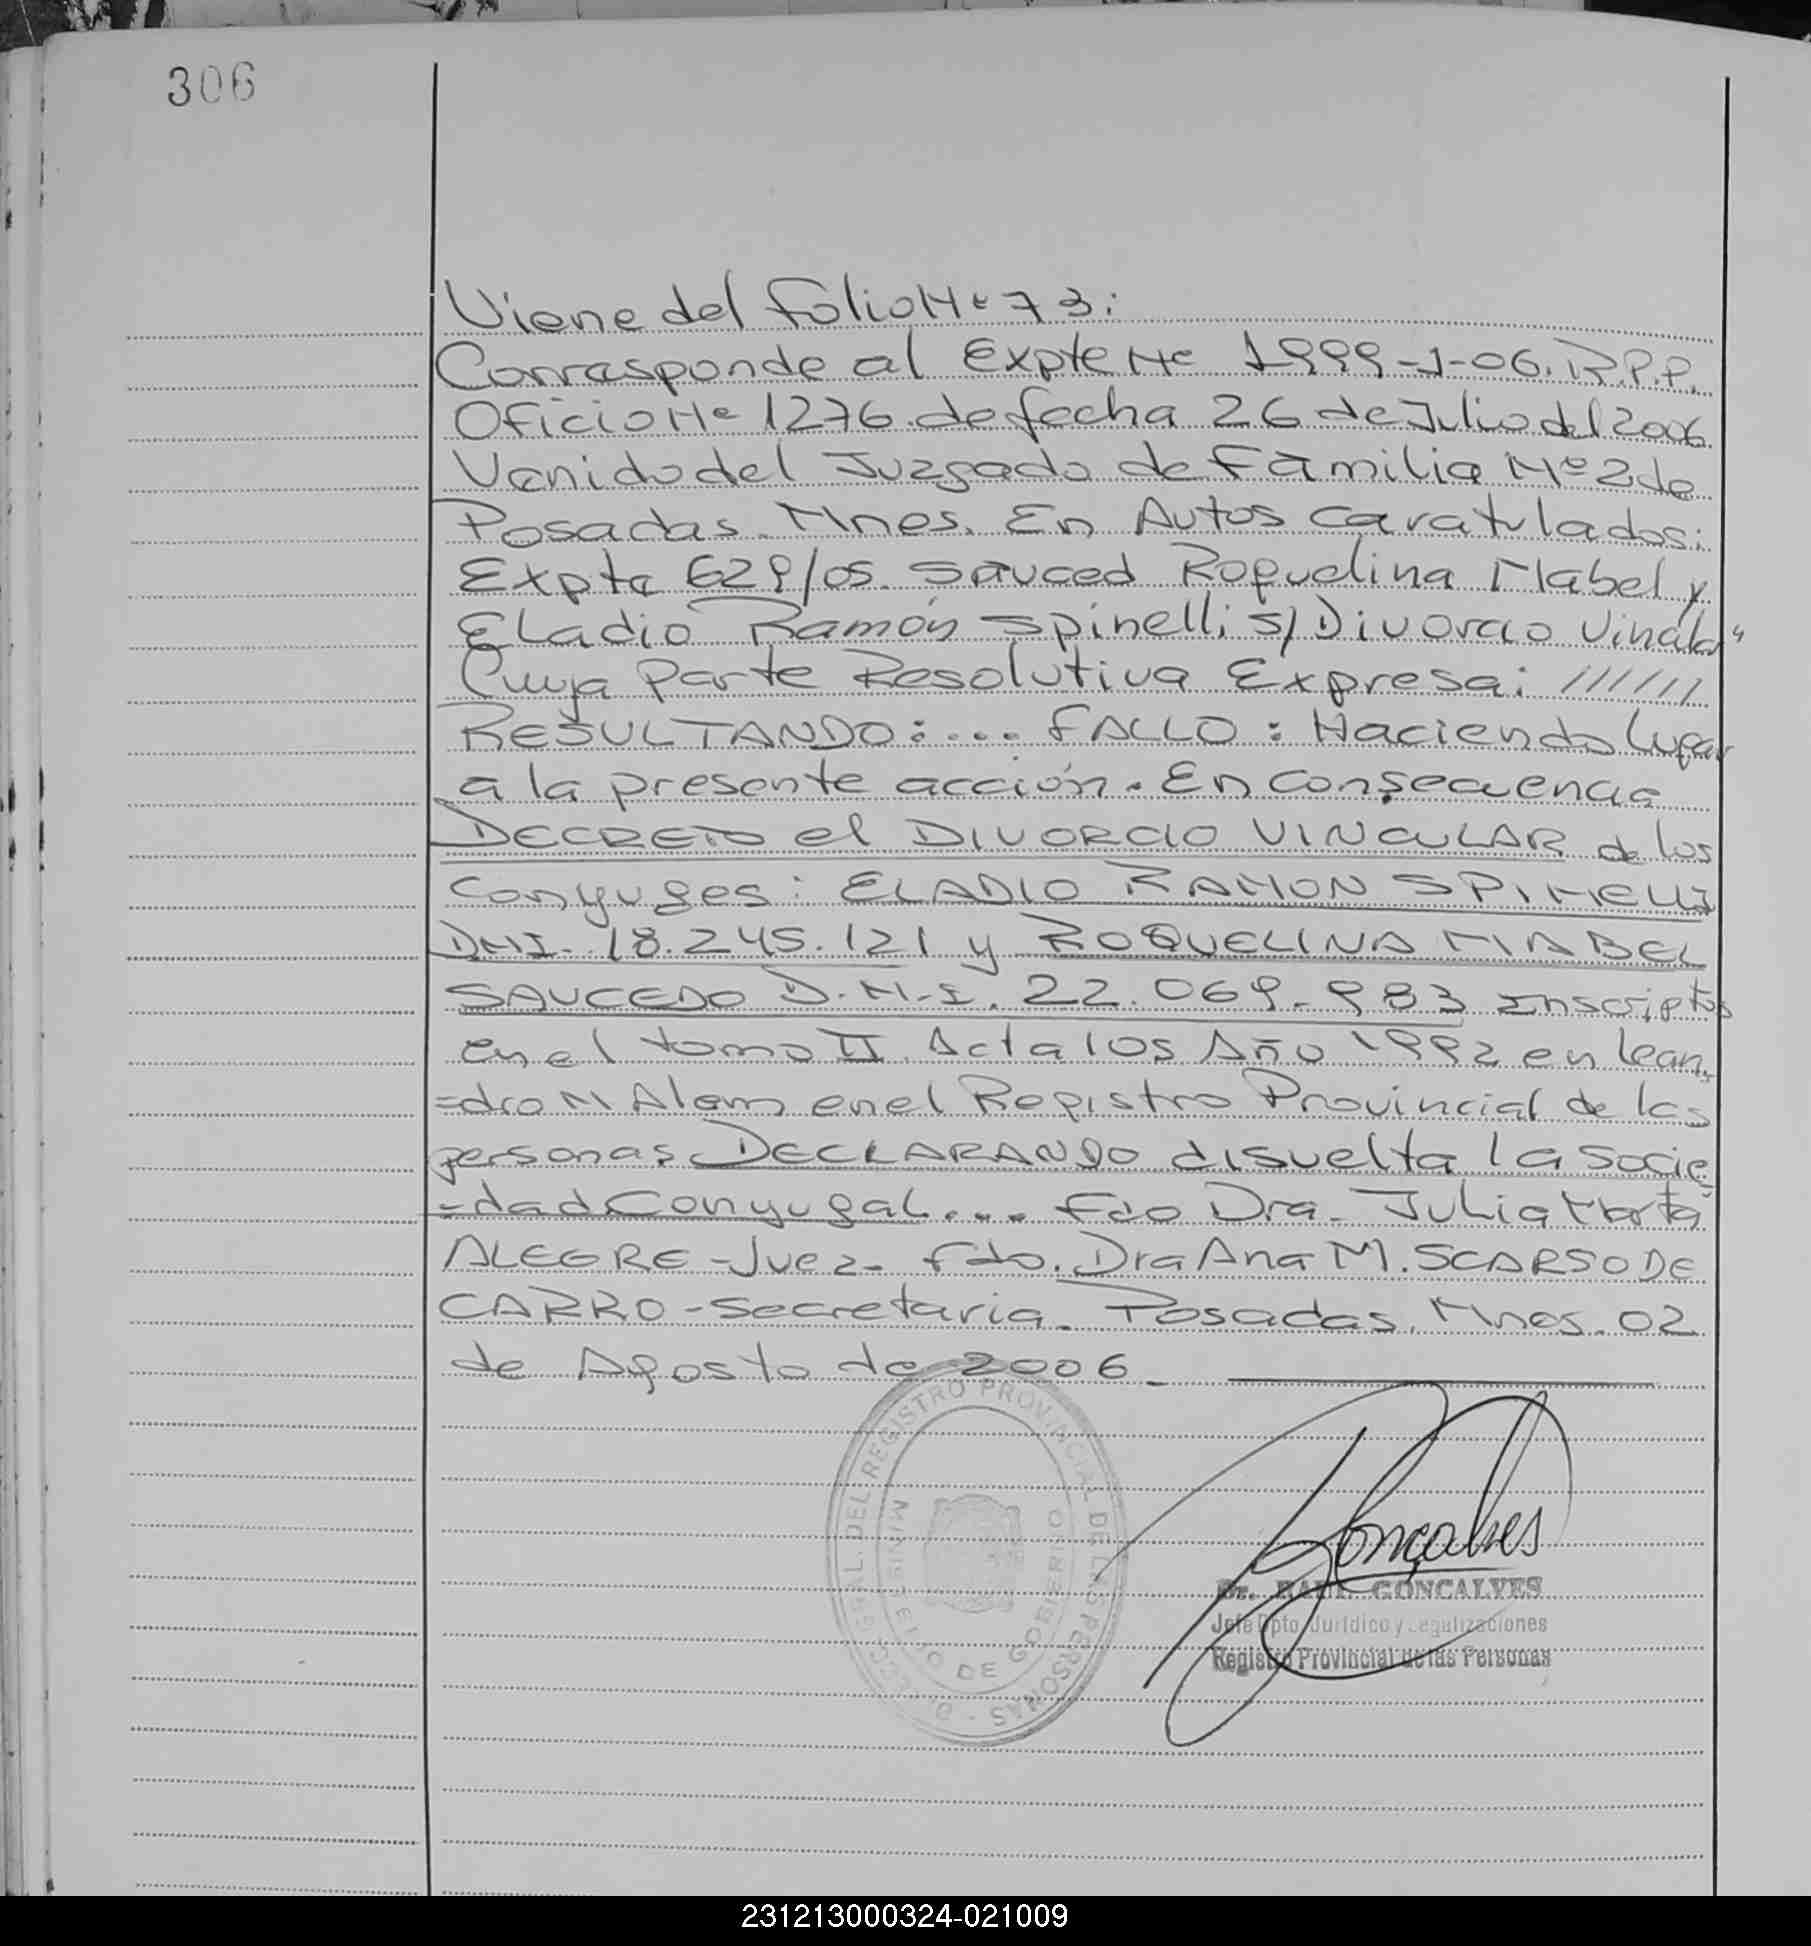 306
Viene del Folio Nº 73:
Corresponde al Expte Nº 1999-J-06. R.P.P.
Oficio Nº 1276 de fecha 26 de Julio del 2006
Venido del Juzgado de Familia Nº 2 de
Posadas. Mnes. En Autos caratulados:
Expte 629/05. Sauced Roquelina Mabel y
Eladio Ramón Spinelli s/Divorcio Vincular"
Cuya Parte Resolutiva Expresa: //////
RESULTANDO:... FALLO: Haciendo lugar
a la presente acción. En consecuencia
DECRETO el DIVORCIO VINCULAR de los
conyuges: ELADIO RAMON SPINELLI
DNI. 18.245.121 y ROQUELINA MABEL
SAUCEDO D.N.I. 22.069.983 Inscriptos
en el tomo II Acta 105 Año 1992 en lean
=dro N Alem en el Registro Provincial de las
personas DECLARANDO disuelta la socie
=dad Conyugal... Fdo Dra. Julia Marta
ALEGRE-Juez. Fdo. Dra Ana M. SCARSO DE
CARRO-Secretaria. Posadas. Mnes. 02
de Agosto de 2006.
REGISTRO PROVINCIAL DE LAS PERSONAS
MINISTERIO DE GOBIERNO
Gonçalves
Dr. RAUL GONCALVES
Jefe Dpto. Jurídico y Legalizaciones
Registro Provincial de las Personas
231213000324-021009